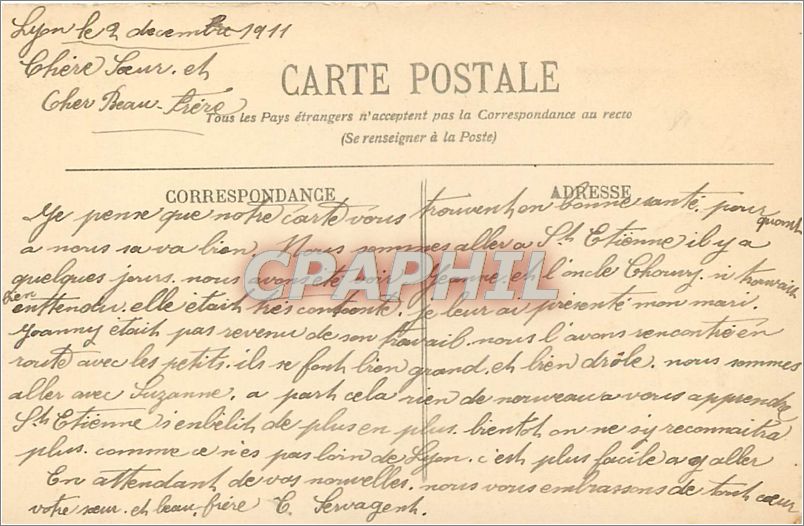 Lyon le 2 decembre 1911
Chère Sœur et
Cher Beau-Frère
CARTE POSTALE
Tous les Pays étrangers n'acceptent pas la Correspondance au recto
(Se renseigner à la Poste)
CORRESPONDANCE
ADRESSE
Je pense que notre carte vous trouvent en bonne santé. pour quant
a nous sa va bien. Nous sommes aller a St Etiènne il y a
quelques jours. nous avons été voir Jeanne. et l'oncle Thoury. si trouvait
bien enttendu. elle etait très contente. je leur ai présenté mon mari.
Joanny était pas revenu de son travail. nous l'avons rencontré en
route avec les petits. ils se font bien grand. et bien drôle. nous sommes
aller avec Suzanne. a part cela rien de nouveau a vous apprendre
St Etiènne s'enbelit de plus en plus. bientot on ne s'y reconnaitra
plus. comme ce n'es pas loin de Lyon. c'est plus facile a y aller
En attendant de vos nouvelles. nous vous embrassons de tout cœur
votre sœur. et beau. frère C. Servagent.
CPRAPHIL